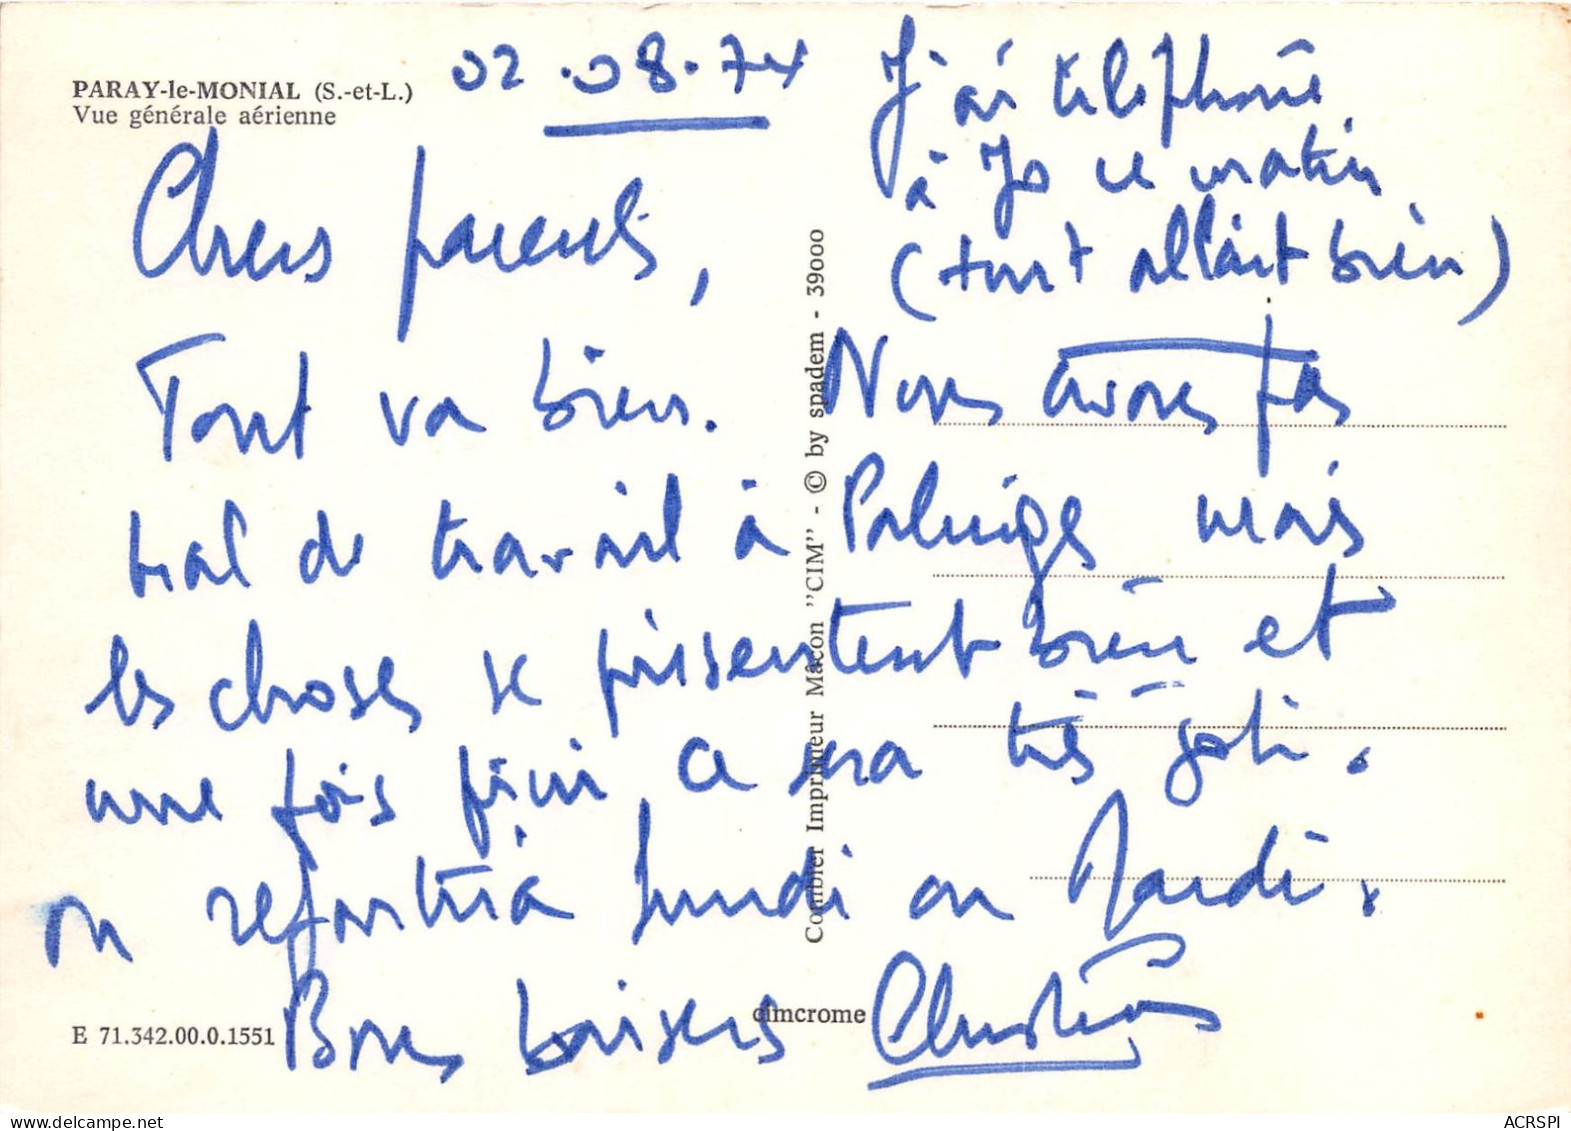 PARAY-le-MONIAL (S.-et-L.)
Vue générale aérienne
02.08.74
Chers parents,
Tout va bien. Nous avons pas
mal de travail à Palinges mais
les choses se présentent bien et
une fois fini, ce sera très joli.
On repartira Lundi ou Mardi.
Bons baisers Christian
J'ai téléphoné
à Jo ce matin
(tout allait bien)
Combier Imprimeur Mâcon "CIM" - © by spadem - 39000
E 71.342.00.0.1551
cimcrome
ACRSPI